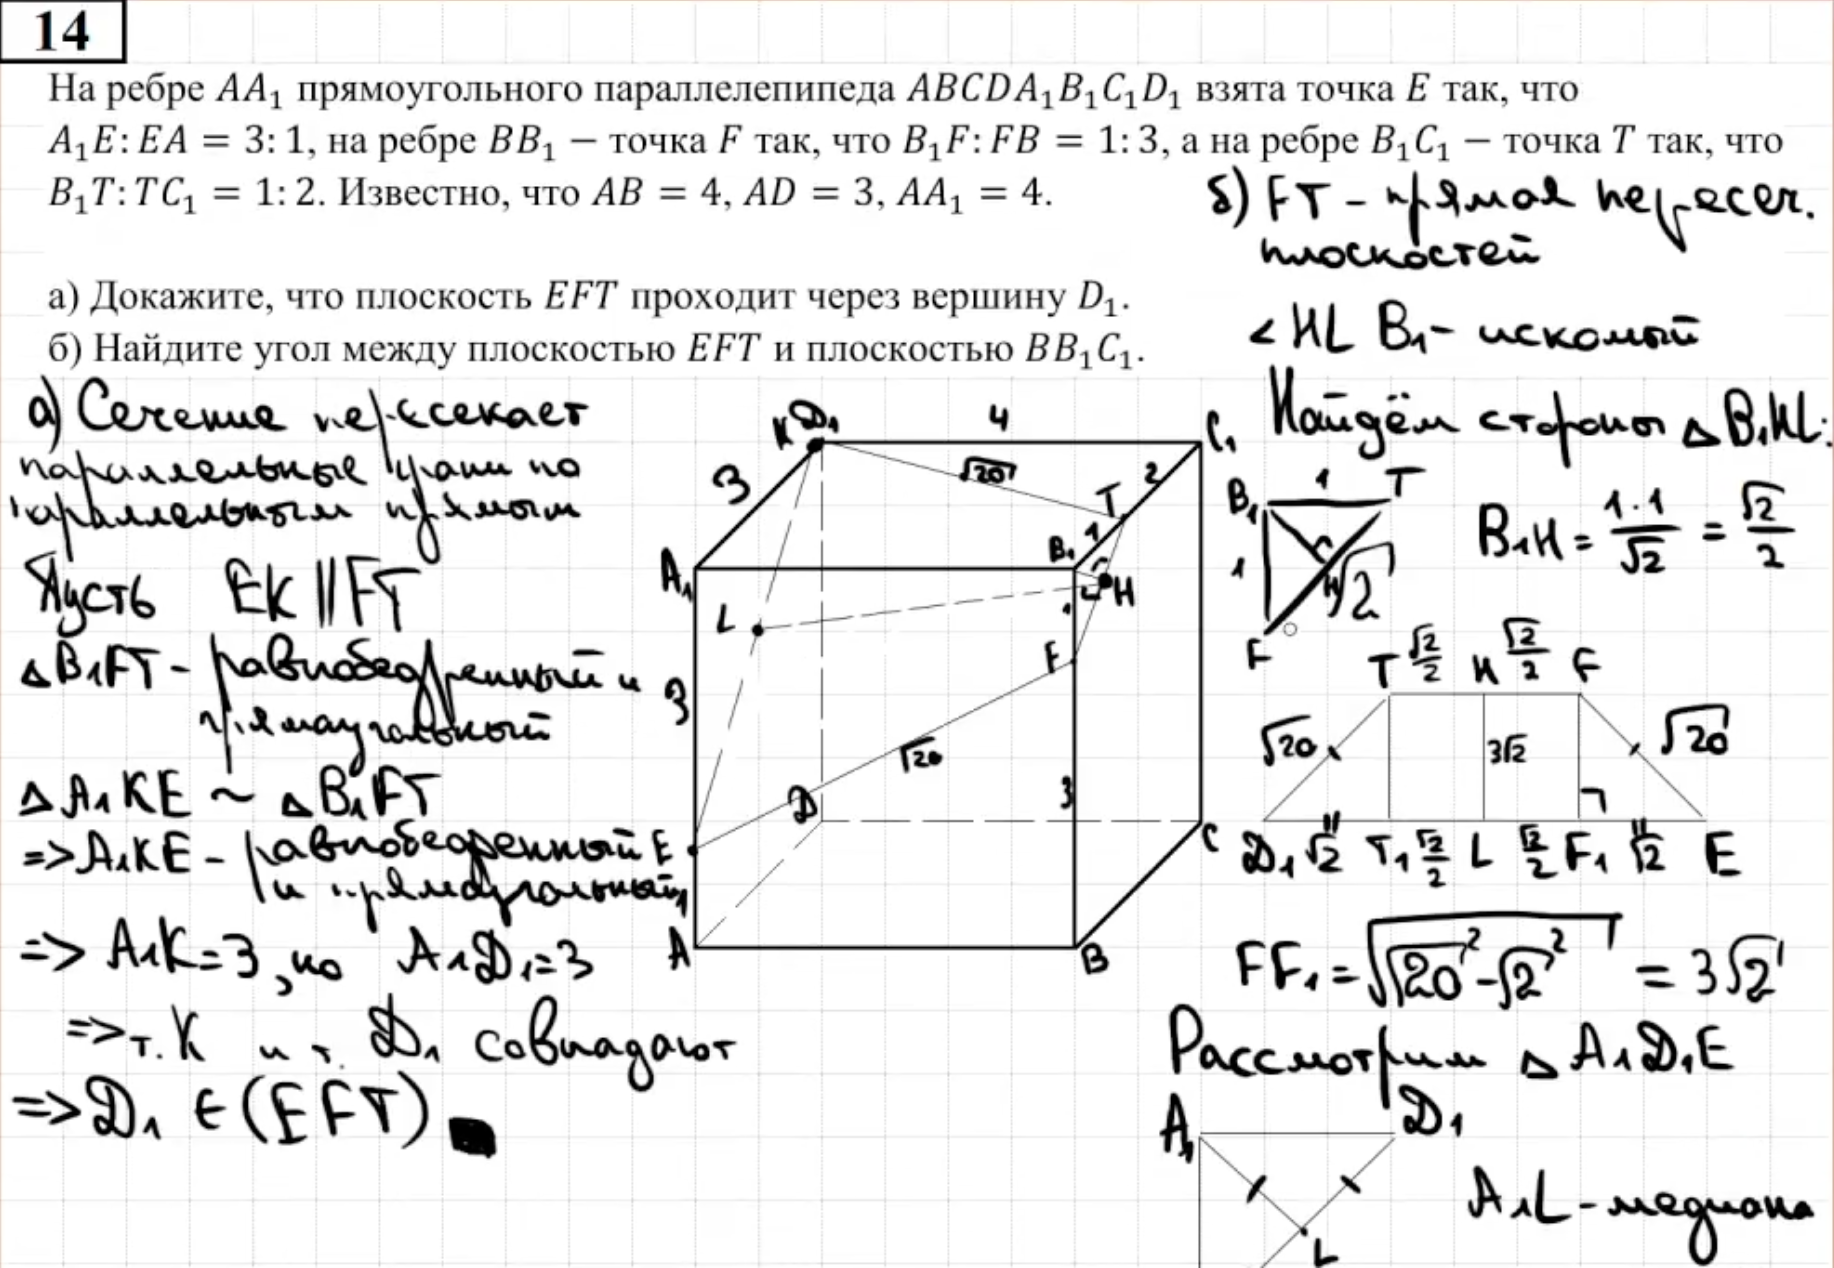 14
На ребре AA₁ прямоугольного параллелепипеда ABCDA₁B₁C₁D₁ взята точка E так, что
A₁E: EA = 3: 1, на ребре BB₁ − точка F так, что B₁F: FB = 1: 3, а на ребре B₁C₁ − точка T так, что
B₁T: TC₁ = 1: 2. Известно, что AB = 4, AD = 3, AA₁ = 4.
а) Докажите, что плоскость EFT проходит через вершину D₁.
б) Найдите угол между плоскостью EFT и плоскостью BB₁C₁.
а) Сечение пересекает
параллельные грани по
параллельным прямым
Пусть EK || FT
△B₁FT - равнобедренный и
прямоугольный
△A₁KE ~ △B₁FT
=> A₁KE - равнобедренный
и прямоугольный
=> A₁K=3, но A₁D₁=3
=> т. K и т. D₁ совпадают
=> D₁ ∈ (EFT)
K D₁ 4 C₁
3 √20 T 2
1
A₁ B₁ H
L 1
3 F
√20
E D 3 C
1
A B
б) FT - прямая пересеч.
плоскостей
∠HLB₁ - искомый
Найдём стороны △B₁HL:
B₁ 1 T
1 H √2
F
B₁H = 1·1/√2 = √2/2
T √2/2 H √2/2 F
√20 3√2 √20
D₁ √2 T₁ √2/2 L √2/2 F₁ √2 E
FF₁ = √(√20² - √2²) = 3√2
Рассмотрим △A₁D₁E
A₁ D₁
L
A₁L - медиана